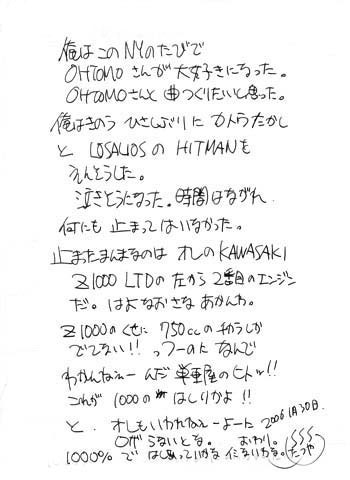 俺はこのNYのたびで
OHTOMOさんが大好きになった。
OHTOMOさんと曲つくりたいと思った。
俺はきのう ひさしぶりに カトウたかし
と LOSALIOSの HITMANも
えんそうした。
泣きそうになった。時間はながれ
何にも止まってはいなかった。
止まったまんまなのは オレのKAWASAKI
Z1000 LTDの 左から2番目のエンジン
だ。はよなおさな あかんわ。
Z1000のくせに 750ccの チカラしか
でてない!! っつーのに なんで
わかんねぇーんだ 単車屋のヒトッ!!
これが 1000の はしりかよ!!
と、オレもいわれねぇーよーに 2006 1月30日.
ならないとな。 おわり。
1000% で はしっていかな イミないわな。たつや